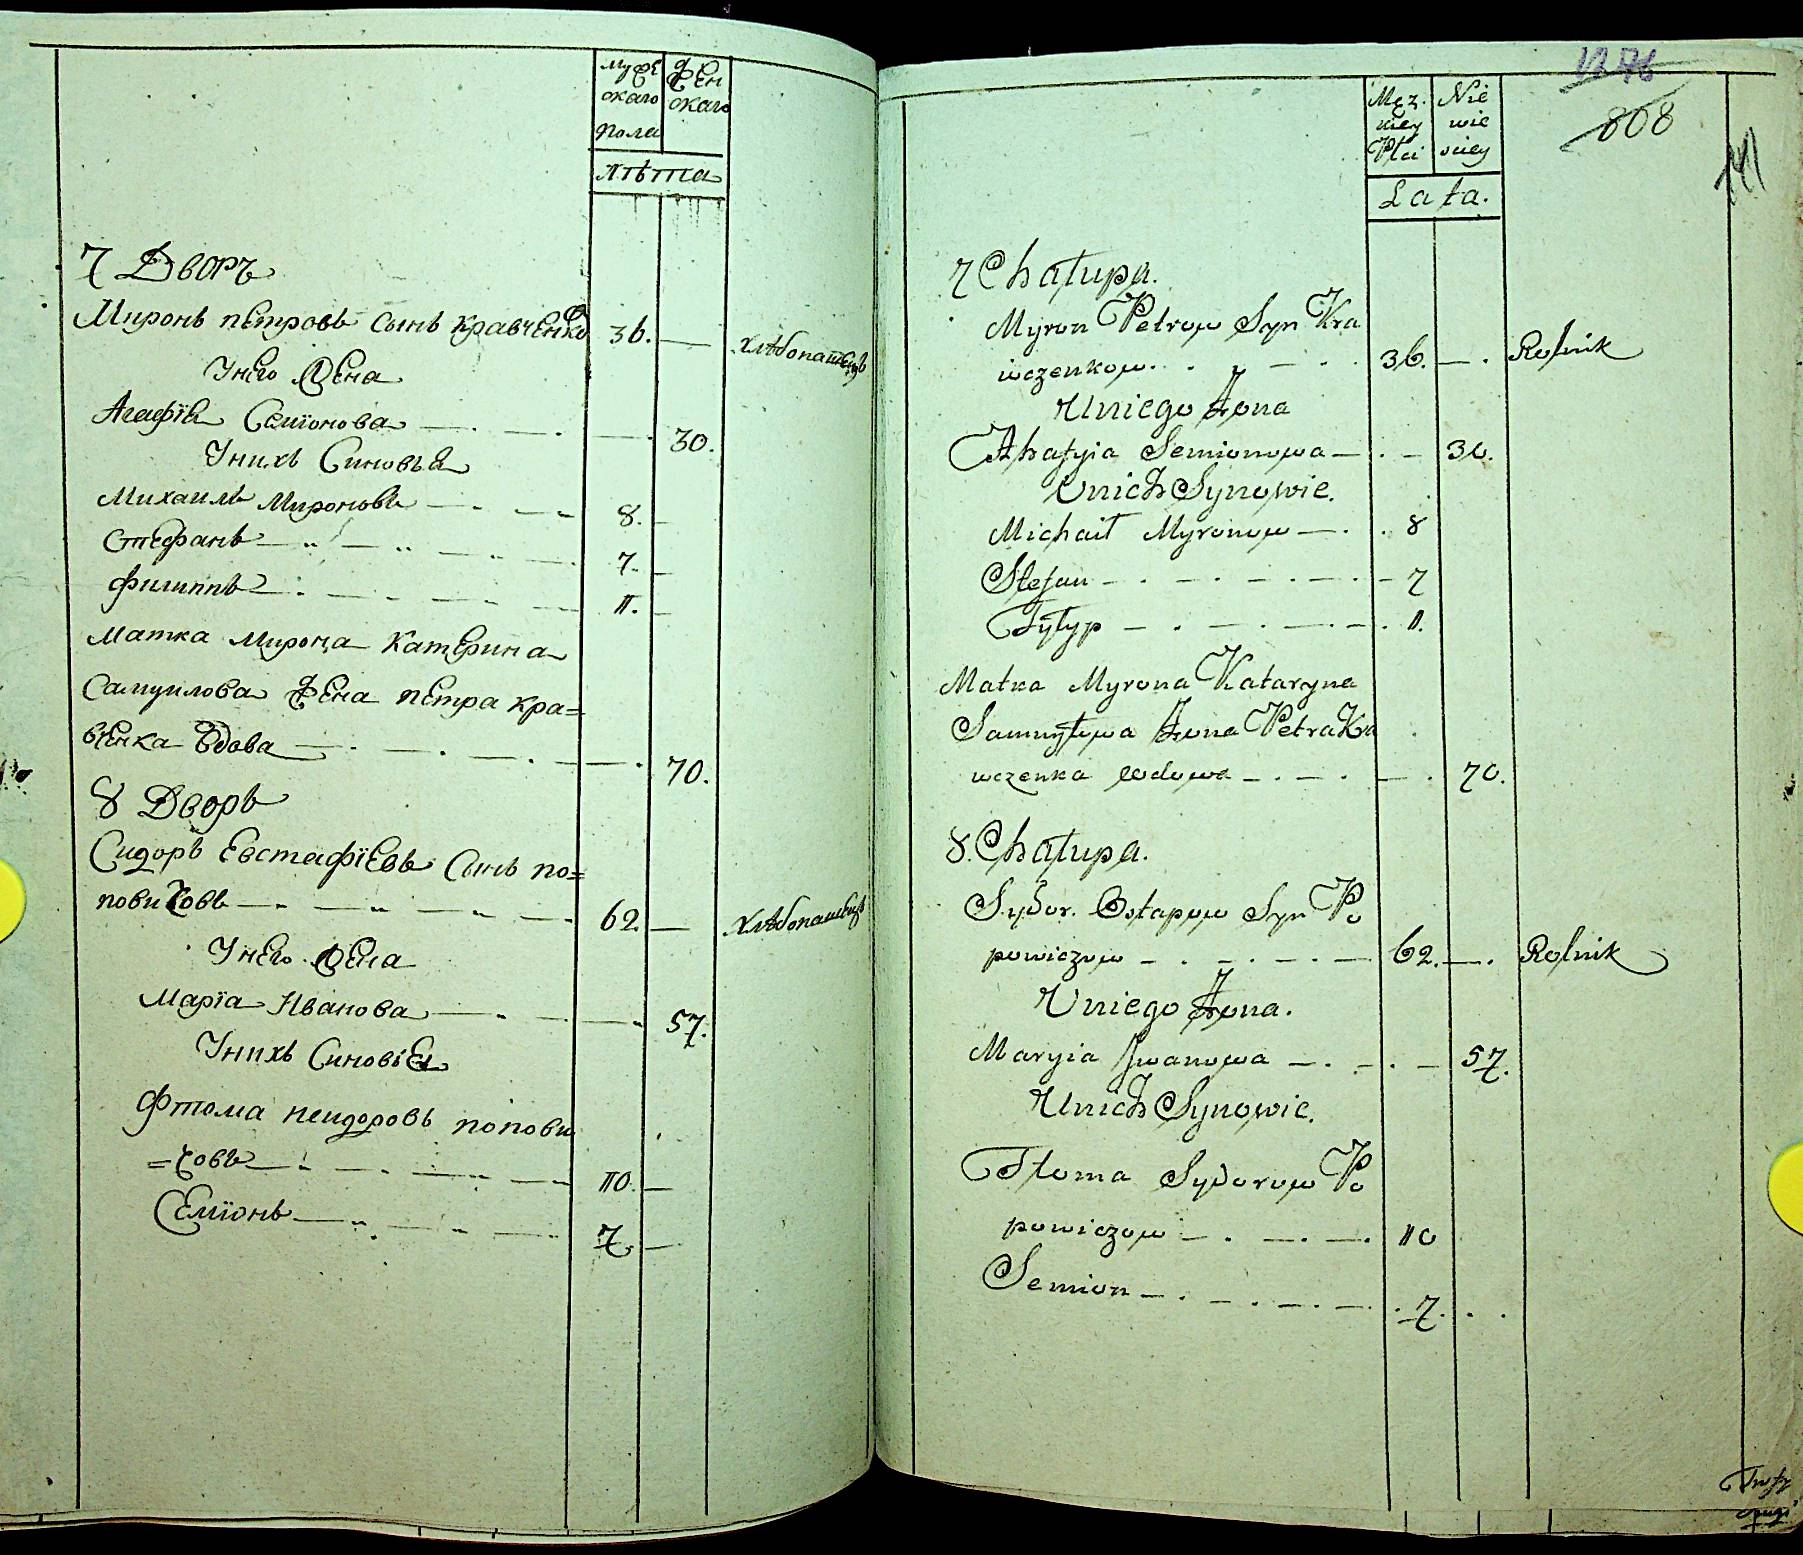 муже
ского
пола
жен
ского
лѣта
7 Дворъ
Миронъ петровъ сынъ кравченко 36. хлѣбопашецъ
Унего жена
Агафїя Семїонова 30.
Унихъ Синовья
Михаилъ Мироновъ 8.
Стефанъ 7.
филиппъ 11.
Матка Мирона Катерина
Самуилова жена петра кра=
вченка вдова 70.
8 Дворъ
Сидоръ Евстафїевъ Сынъ по=
повичовъ 62. хлѣбопашецъ
Унего жена
Марїа Иванова 57.
Унихъ Синовїя
Фтома сидоровъ попови
=човъ 10.
Семїонъ 7.
808
Męz.
kiey
Płci
Nie
wie
sciey
Lata.
7 Chałupa.
Myron Petrow Syn Kra
wczenkow. 36. Rolnik
Uniego Żona
Ahafyia Semionowa 30.
Unich Synowie.
Michaił Myronow 8
Stefan 7
Fyłyp 11.
Matka Myrona Kataryna
Samuyłowa Żona Petra Kra
wczenka wdowa 70.
8. Chałupa.
Sydor. Ostapow Syn Po
powiczow 62. Rolnik
Uniego Żona.
Maryia Iwanowa 57.
Unich Synowie.
Ftoma Sydorow Po
powiczow 10
Semion 7.